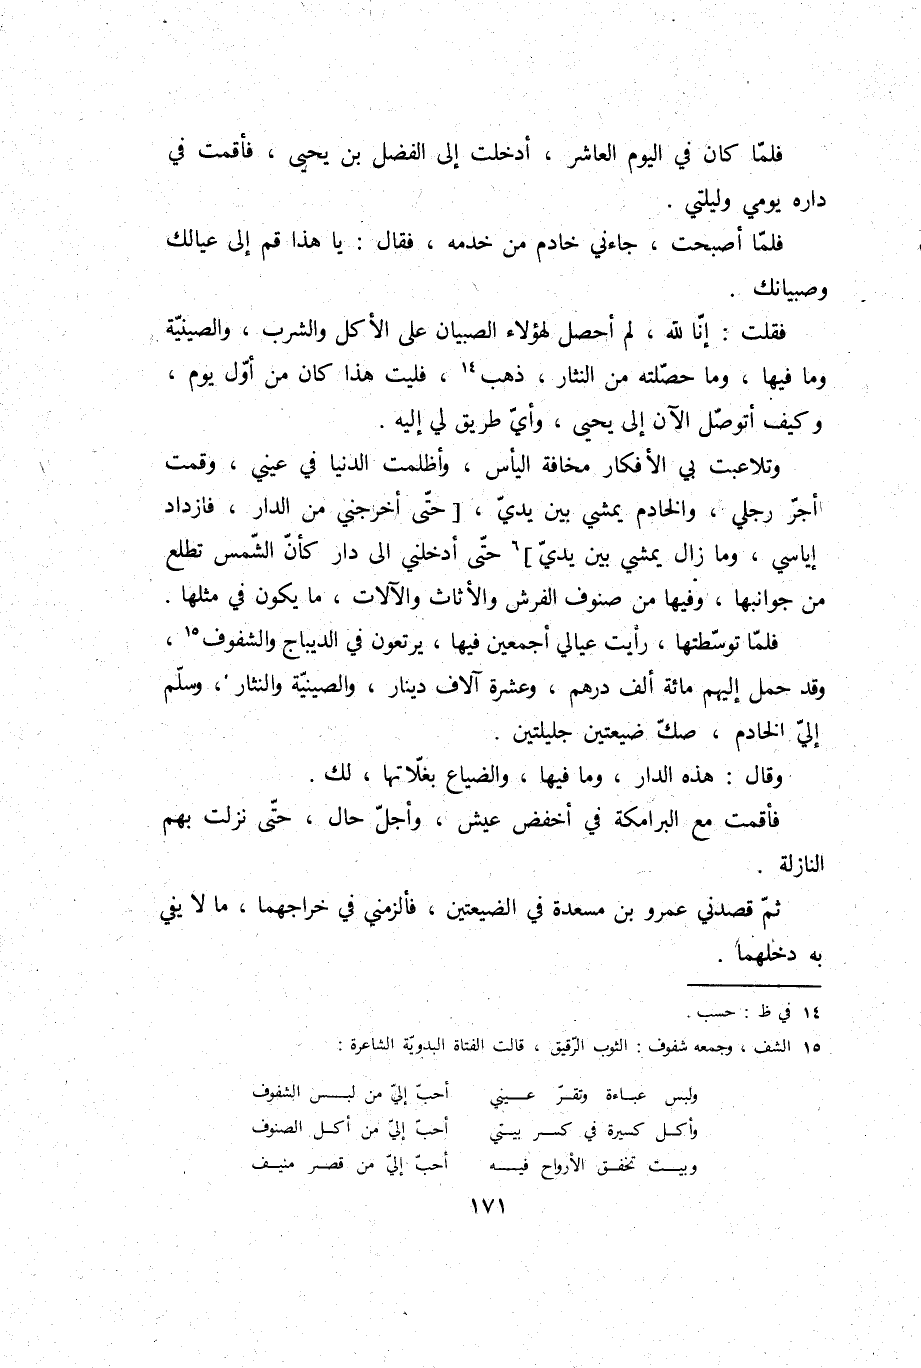 فلمّا كان في اليوم العاشر ، أدخلت إلى الفضل بن يحيى ، فأقمت في
داره يومي وليلتي .
فلمّا أصبحت ، جاءني خادم من خدمه ، فقال : يا هذا قم إلى عيالك
وصبيانك .
فقلت : إنّا لله ، لم أحصل لهؤلاء الصبيان على الأكل والشرب ، والصينيّة
وما فيها ، وما حصّلته من النثار ، ذهب١٤ ، فليت هذا كان من أوّل يوم ،
وكيف أتوصّل الآن إلى يحيى ، وأيّ طريق لي إليه .
وتلاعبت بي الأفكار مخافة اليأس ، وأظلمت الدنيا في عيني ، وقمت
أجرّ رجلي ، والخادم يمشي بين يديّ ، [ حتّى أخرجني من الدار ، فازداد
إياسي ، وما زال يمشي بين يديّ ]٦ حتّى أدخلني الى دار كأنّ الشّمس تطلع
من جوانبها ، وفيها من صنوف الفرش والأثاث والآلات ، ما يكون في مثلها .
فلمّا توسّطتها ، رأيت عيالي أجمعين فيها ، يرتعون في الديباج والشفوف١٥ ،
وقد حمل إليهم مائة ألف درهم ، وعشرة آلاف دينار ، والصينيّة والنثار ، وسلّم
إليّ الخادم ، صكّ ضيعتين جليلتين .
وقال : هذه الدار ، وما فيها ، والضياع بغلّاتها ، لك .
فأقمت مع البرامكة في أخفض عيش ، وأجلّ حال ، حتّى نزلت بهم
النازلة .
ثمّ قصدني عمرو بن مسعدة في الضيعتين ، فألزمني في خراجهما ، ما لا يفي
به دخلهما .
١٤ في ظ : حسب .
١٥ الشف ، وجمعه شفوف : الثوب الرّقيق ، قالت الفتاة البدويّة الشاعرة :
ولبس عباءة وتقرّ عيني أحبّ إليّ من لبس الشفوف
وأكل كسيرة في كسر بيتي أحبّ إليّ من أكل الصنوف
وبيت تخفق الأرواح فيه أحبّ إليّ من قصر منيف
١٧١